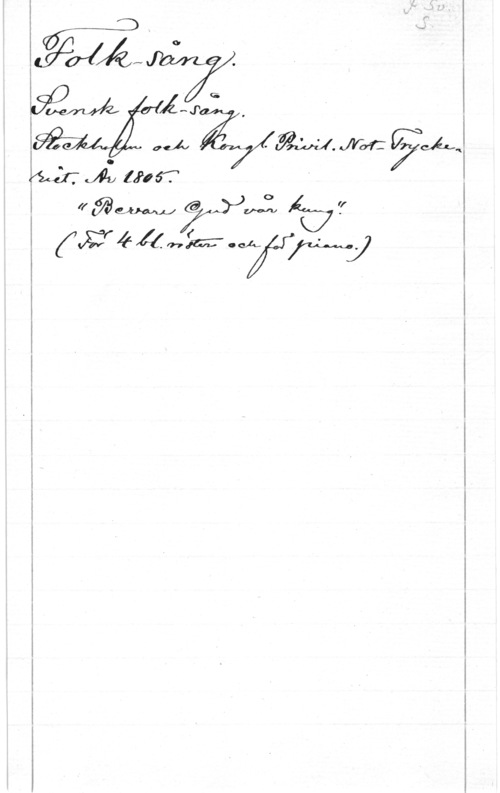 Folk-sång.
Svensk folk-sång.
Stockholm och Kongl. Privil. Not-Trycke-
riet. År 1805.
"Bevare Gud vår kung."
(För 4 bl. röster och för piano.)